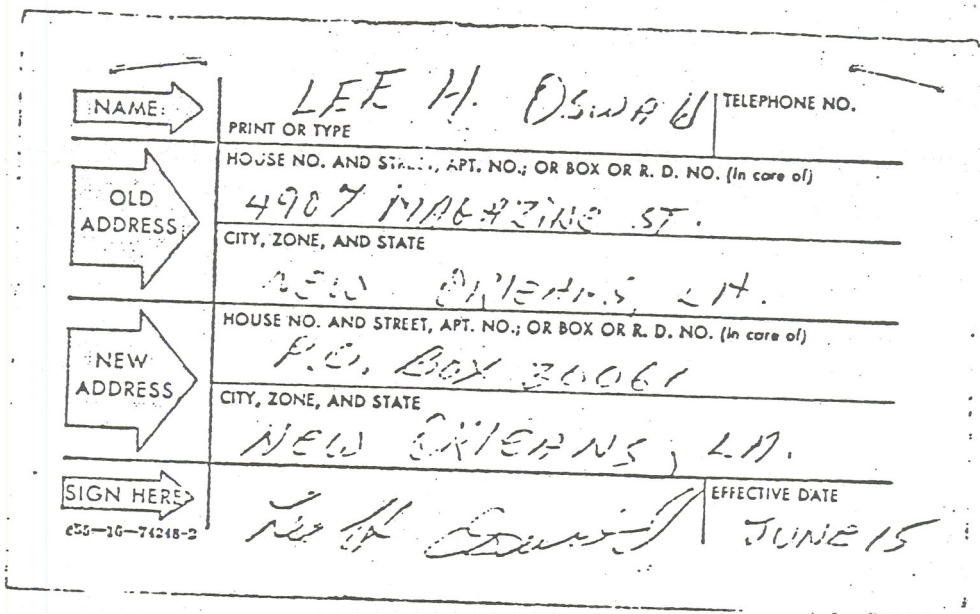 NAME:
LEE H. OSWALD
TELEPHONE NO.
PRINT OR TYPE
OLD ADDRESS
HOUSE NO. AND STREET, APT. NO.; OR BOX OR R. D. NO. (In care of)
4907 MAGAZINE ST.
CITY, ZONE, AND STATE
NEW ORLEANS, LA.
NEW ADDRESS
HOUSE NO. AND STREET, APT. NO.; OR BOX OR R. D. NO. (In care of)
P.O. BOX 30061
CITY, ZONE, AND STATE
NEW ORLEANS, LA.
SIGN HERE
Lee H Oswald
EFFECTIVE DATE
JUNE 15
c55—16—74248-2